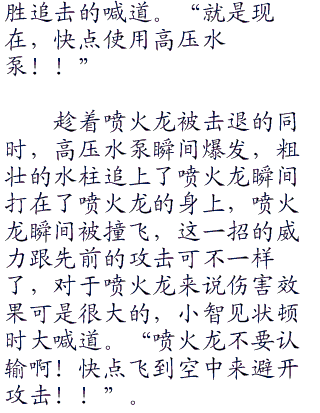 胜追击的喊道。“就是现
在，快点使用高压水
泵！！”
趁着喷火龙被击退的同
时，高压水泵瞬间爆发，粗
壮的水柱追上了喷火龙瞬间
打在了喷火龙的身上，喷火
龙瞬间被撞飞，这一招的威
力跟先前的攻击可不一样
了，对于喷火龙来说伤害效
果可是很大的，小智见状顿
时大喊道。“喷火龙不要认
输啊！快点飞到空中来避开
攻击！！”。